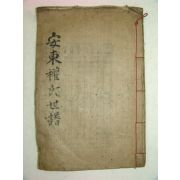 安東權氏世譜